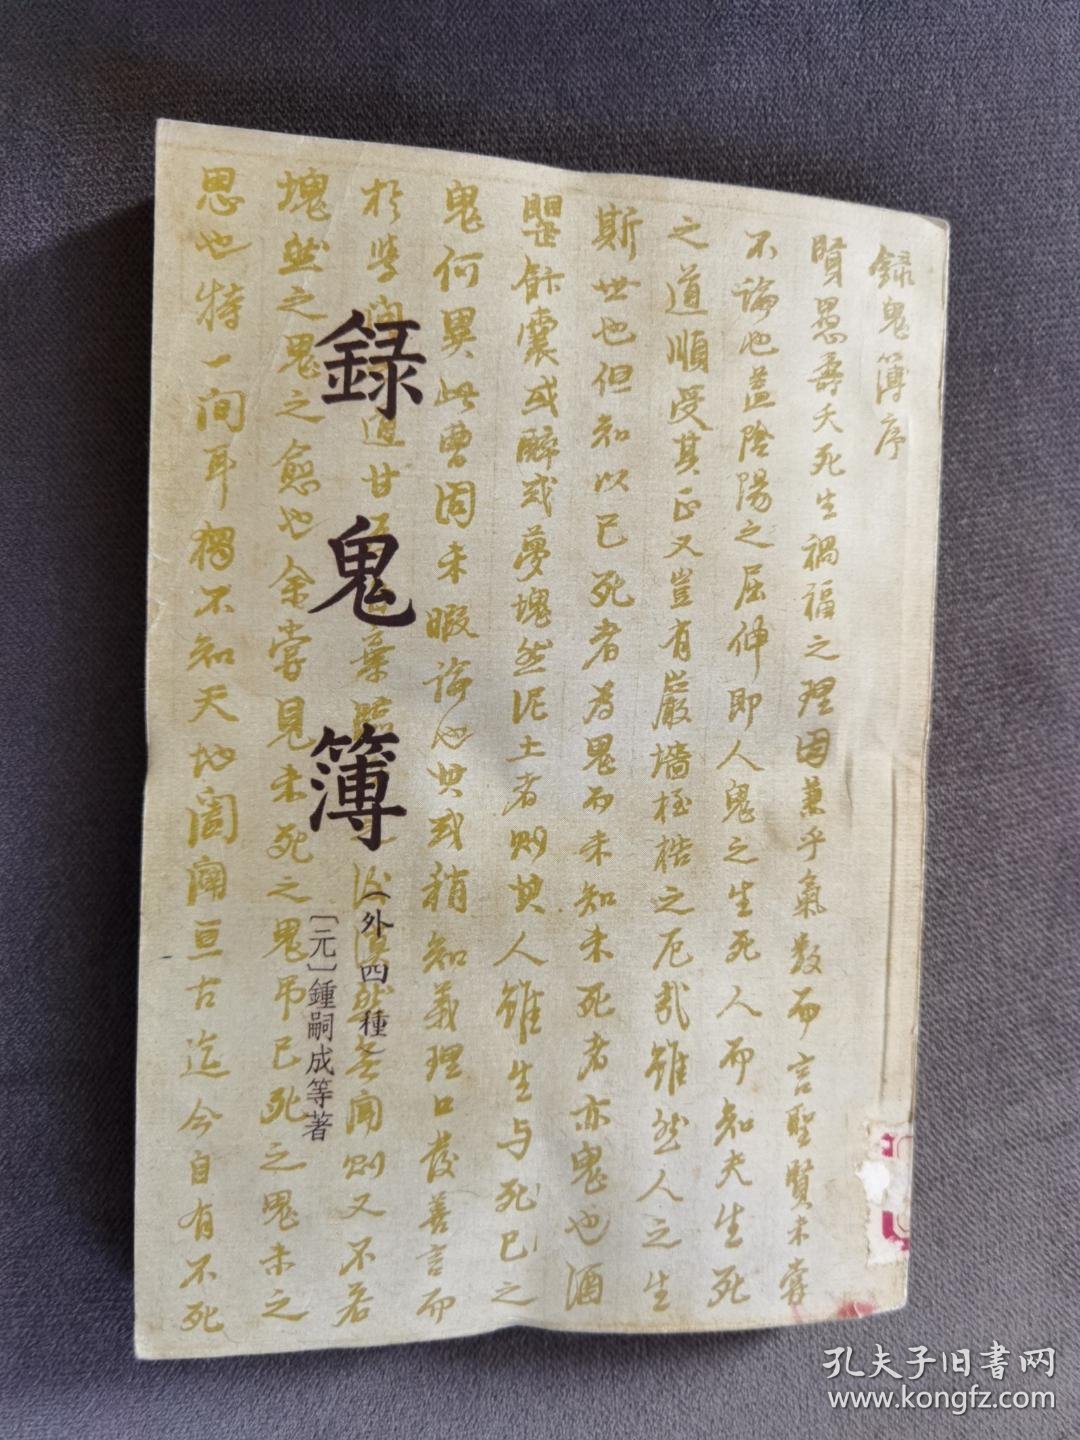 録鬼簿
（外四種）
〔元〕鍾嗣成等著
録鬼簿序
賢愚壽夭死生禍福之理固兼乎氣數而言聖賢未嘗
不論也蓋陰陽之屈伸即人鬼之生死人而知夫生死
之道順受其正又豈有巖墻桎梏之厄哉雖然人之生
斯世也但知以已死者為鬼而未知未死者亦鬼也酒
罌飯囊或醉或夢塊然泥土者則其人雖生与死已之
鬼何異此曹固未暇論也其或稍知義理口發善言而
於學問之道甘自棄臨之後漠然無聞則又不若
塊然之鬼之愈也余嘗見未死之鬼吊已死之鬼未之
思也特一間耳獨不知天地闔闢亘古迄今自有不死
孔夫子旧書网
www.kongfz.com